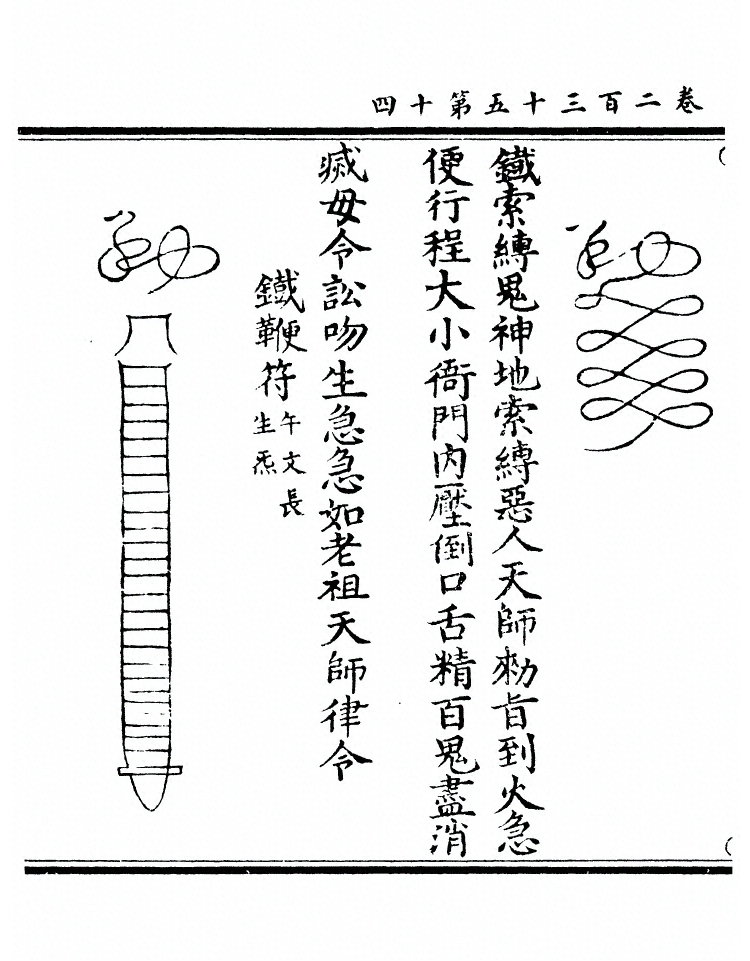 卷二百三十五第十四
鐵索縛鬼神地索縛惡人天師勑旨到火急
便行程大小衙門內壓倒口舌精百鬼盡消
滅毋令訟吻生急急如老祖天師律令
鐵鞭符
午文長
生炁